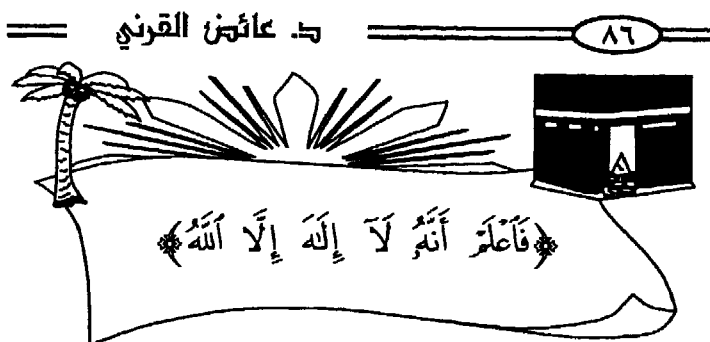 ٨٦ د. عائض القرني
﴿فَٱعۡلَمۡ أَنَّهُۥ لَآ إِلَٰهَ إِلَّا ٱللَّهُ﴾